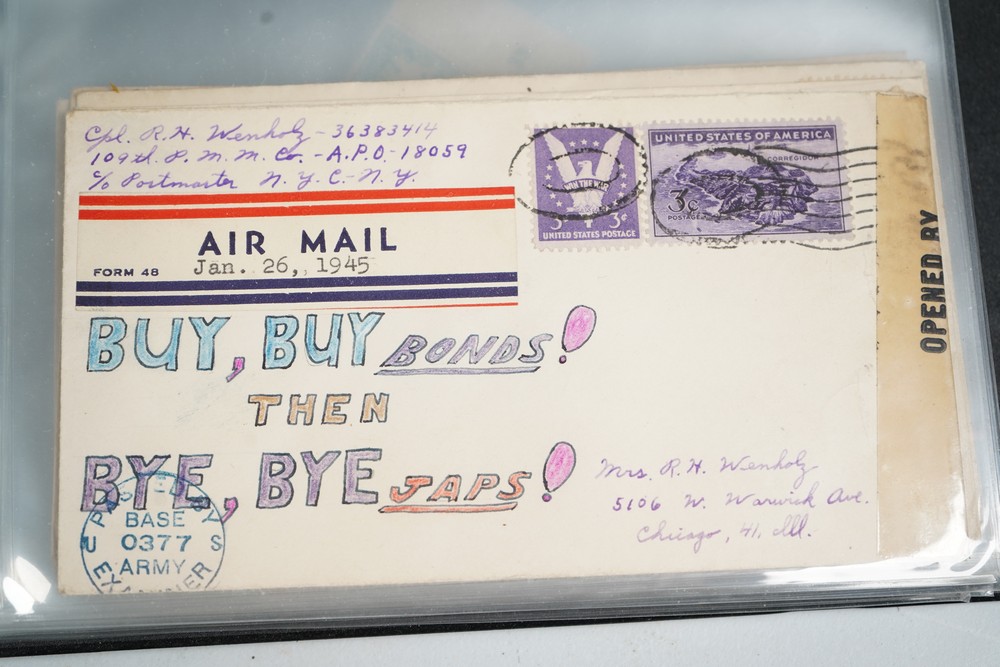 Cpl. R. H. Wenholz - 36383414
109th P. M. M. Co. - A.P.O - 18059
c/o Postmaster N. Y. C - N. Y.
AIR MAIL
FORM 48 Jan. 26, 1945
WIN THE WAR
3¢ 3¢
UNITED STATES POSTAGE
UNITED STATES OF AMERICA
CORREGIDOR
3c
POSTAGE
OPENED BY
BUY, BUY BONDS!
THEN
BYE, BYE JAPS!
PASSED BY
BASE
U 0377 S
ARMY
EXAMINER
Mrs. R. H. Wenholz
5106 W. Warwick Ave.
Chicago, 41, Ill.